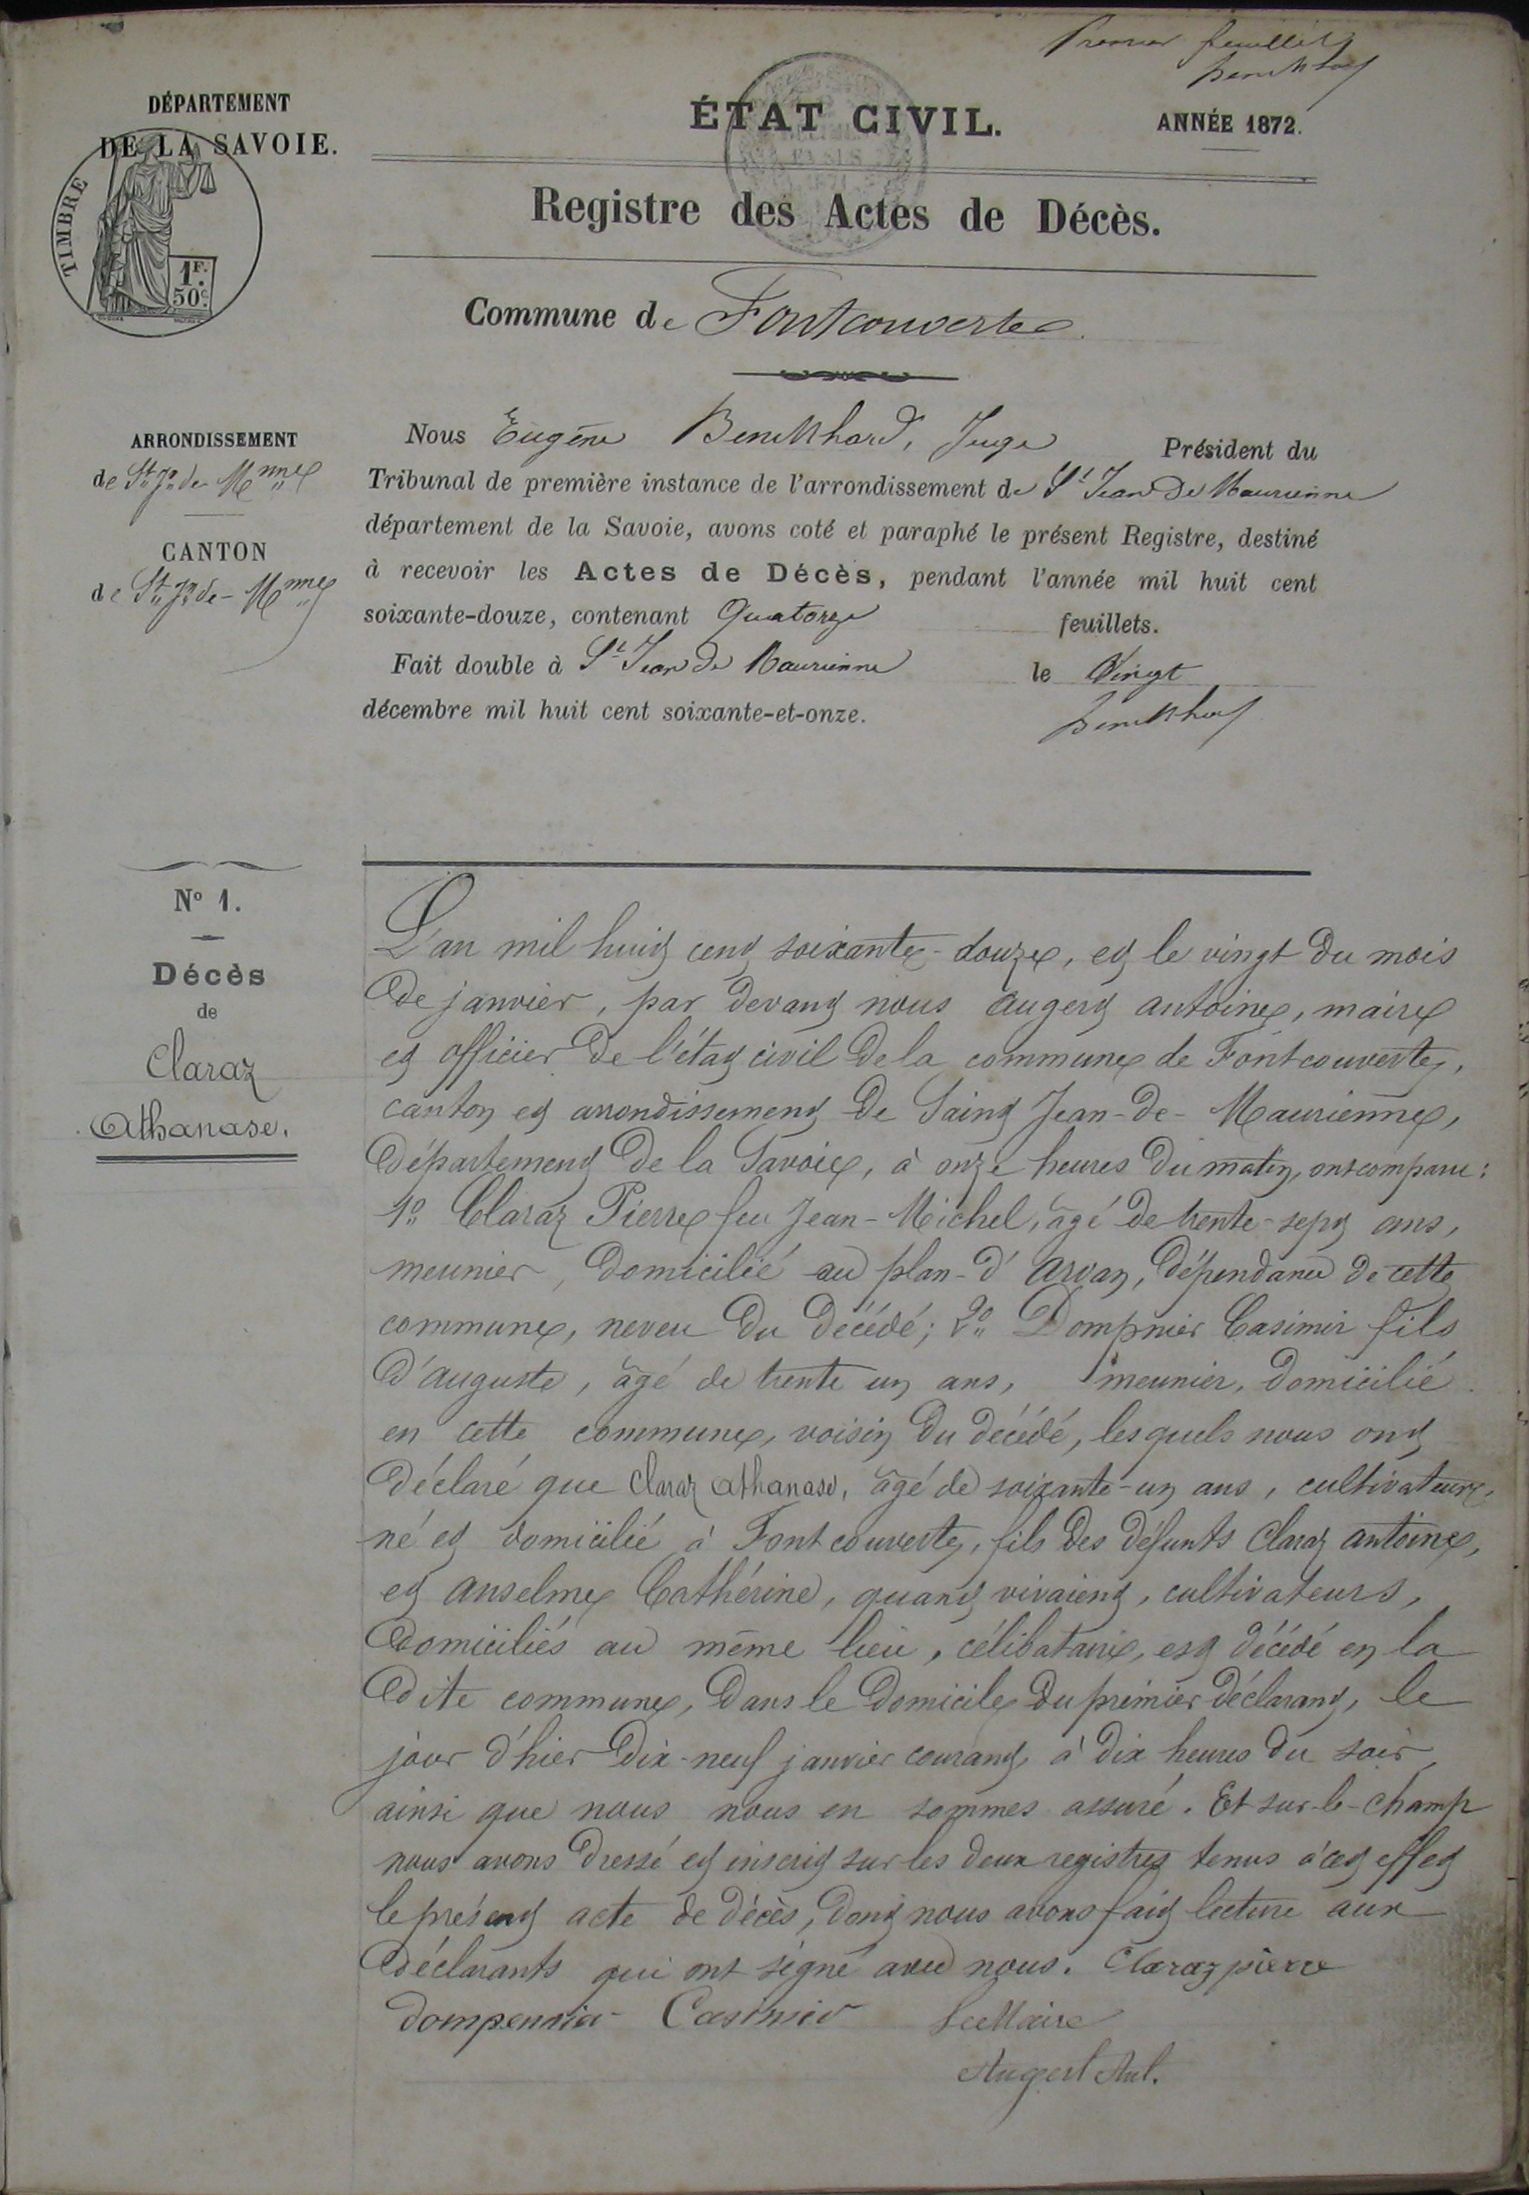 Premier feuillet
DÉPARTEMENT
DE LA SAVOIE.
TIMBRE
1F.
50c.
ÉTAT CIVIL.
ANNÉE 1872.
Registre des Actes de Décès.
Commune de Fontcouverte
ARRONDISSEMENT
de St Jn de Mnne
CANTON
de St Jn de - Mnne
Nous Eugène Juge Président du
Tribunal de première instance de l'arrondissement de St Jean de Maurienne
département de la Savoie, avons coté et paraphé le présent Registre, destiné
à recevoir les Actes de Décès, pendant l'année mil huit cent
soixante-douze, contenant Quatorze feuillets.
Fait double à St Jean de Maurienne le Vingt
décembre mil huit cent soixante-et-onze.
No 1.
Décès
de
Claraz
Athanase.
L'an mil huit cent soixante-douze, et le vingt du mois
de janvier, par devant nous Augert antoine, maire
et officier de l'état civil de la commune de Fontcouverte,
canton et arrondissement de Saint Jean-de-Maurienne,
département de la Savoie, à onze heures du matin, ont comparu:
1o Claraz Pierre feu Jean-Michel, âgé de trente-sept ans,
meunier, domicilié au plan-d'arvan, dépendance de cette
commune, neveu du décédé; 2o Dompnier Casimir fils
d'auguste, âgé de trente un ans, meunier, domicilié
en cette commune, voisin du décédé, lesquels nous ont
déclaré que Claraz athanase, âgé de soixante-un ans, cultivateur,
né et domicilié à Fontcouverte, fils des défunts Claraz antoine,
et anselme Cathérine, quand vivaient, cultivateurs,
domiciliés au même lieu, célibataire, est décédé en la
dite commune, dans le domicile du premier déclarant, le
jour d'hier dix-neuf janvier courant, à dix heures du soir
ainsi que nous nous en sommes assuré. Et sur-le-champ
nous avons dressé et inscrit sur les deux registres tenus à cet effet
le présent acte de décès, dont nous avons fait lecture aux
déclarants qui ont signé avec nous. Claraz pierre
Casimir Le Maire
Augert Ant.